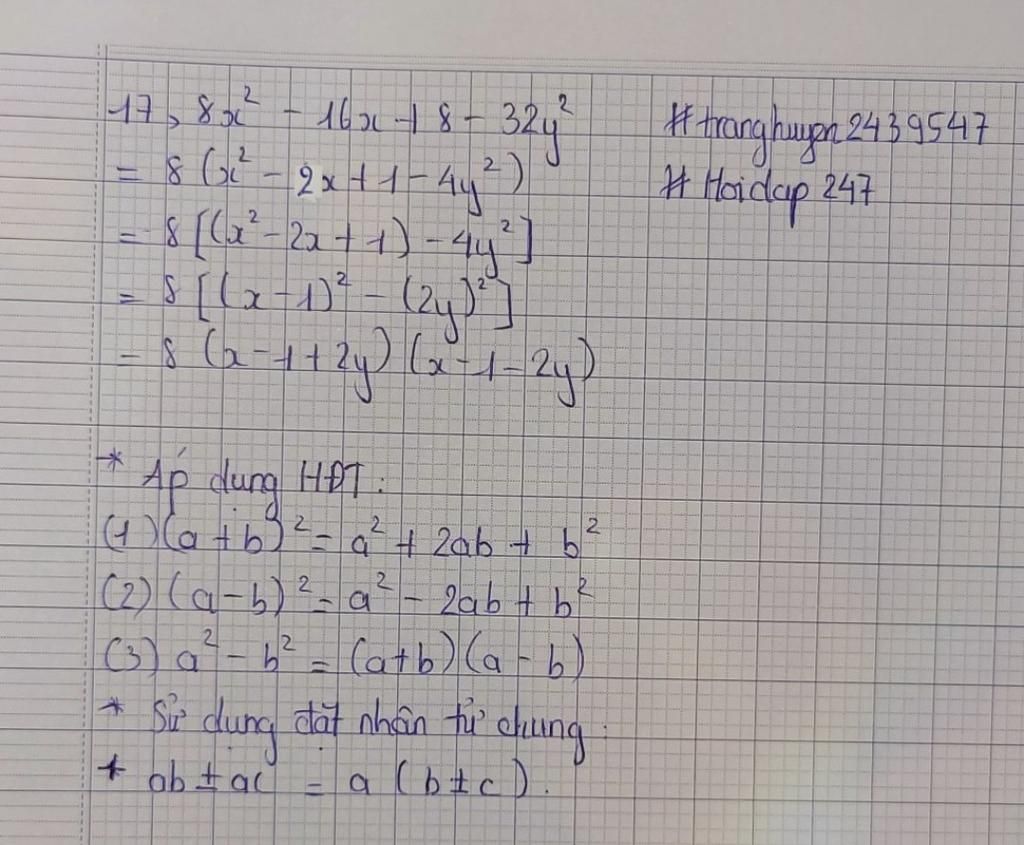 17, 8x² - 16x + 8 - 32y²
= 8 (x² - 2x + 1 - 4y²)
= 8 [(x² - 2x + 1) - 4y²]
= 8 [(x - 1)² - (2y)²]
= 8 (x - 1 + 2y) (x - 1 - 2y)
#tranghuyen2439547
# Hoidap 247
* Áp dụng HĐT:
(1) (a + b)² = a² + 2ab + b²
(2) (a - b)² = a² - 2ab + b²
(3) a² - b² = (a + b) (a - b)
* Sử dụng đặt nhân tử chung:
* ab ± ac = a (b ± c).